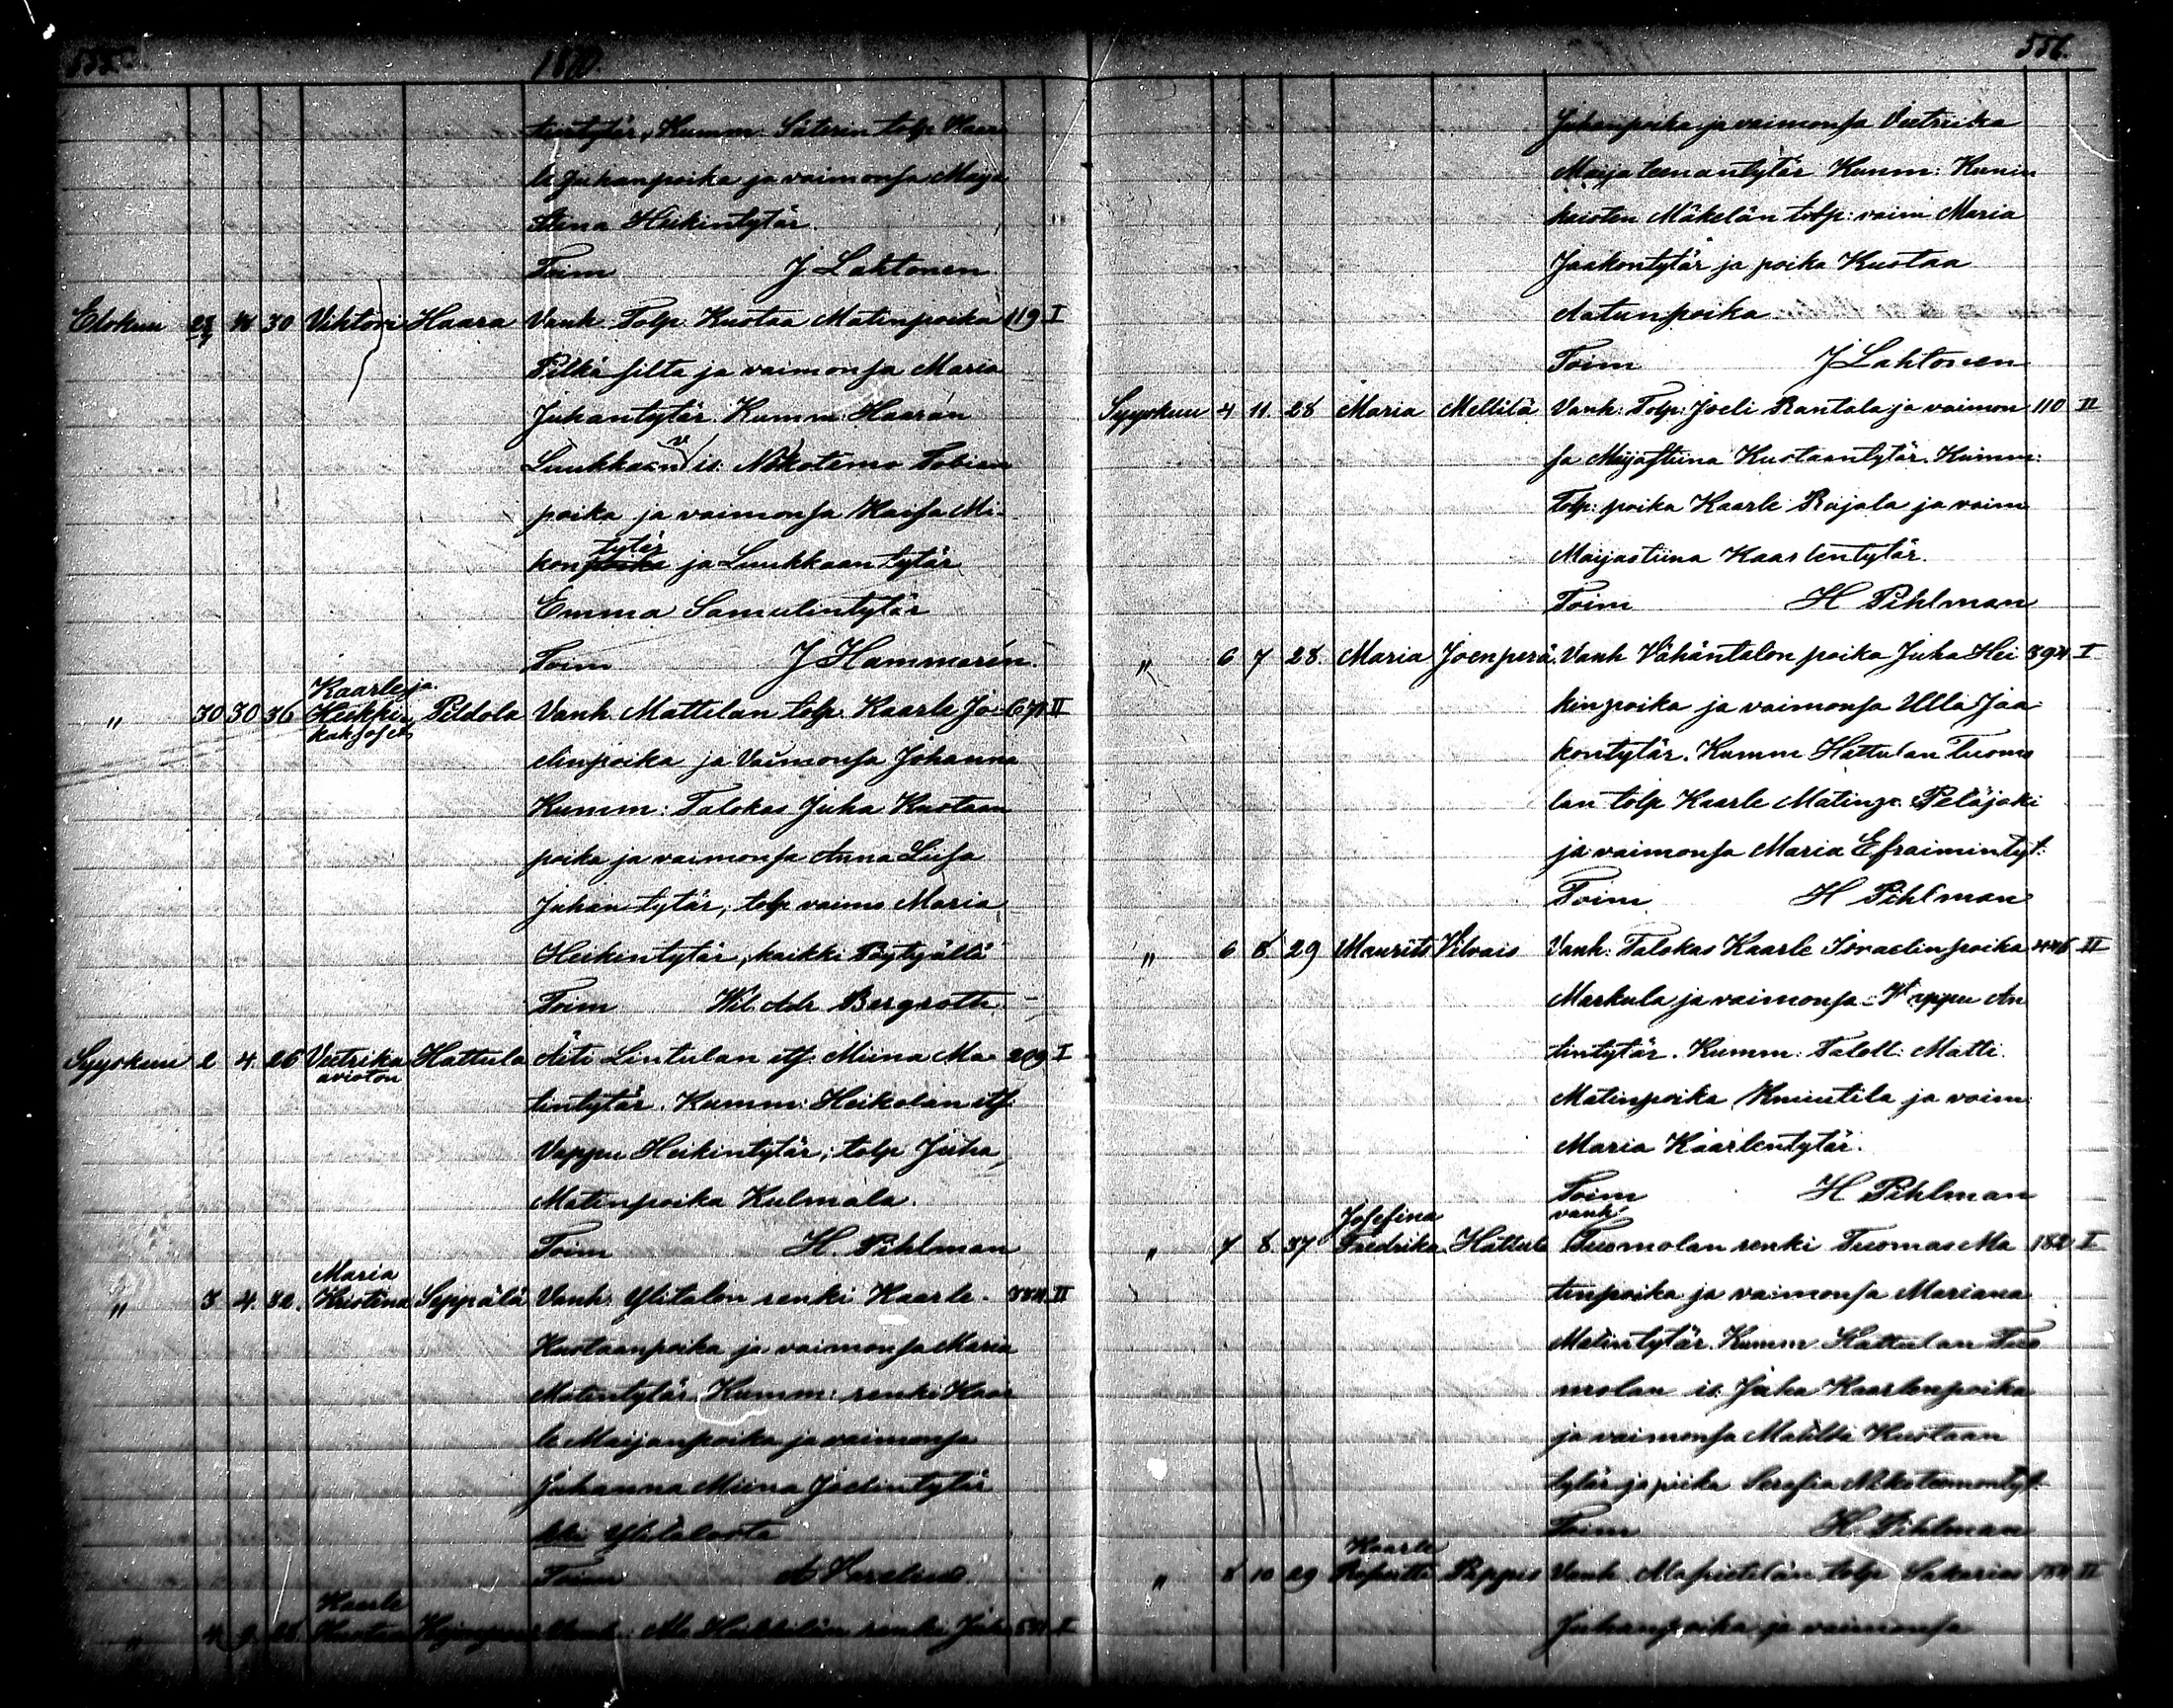 555
1870.
tintytär, Kumm. Säterin tolp. Kaar
le Juhanpoika ja vaimonsa Maija
Stina Heikintytär.
Toim J Lahtonen
Elokuu 30 Vihtori Haara Vanh. Tolp. Kustaa Matinpoika 119 I
Pitkä silta ja vaimonsa Maria
Juhantytär. Kumm: Haaran
Luukkaan is: Nikotemo Tobian
poika ja vaimonsa Kaisa Mi-
kontytär ja Luukkaan tytär
Emma Samulintytär
Toim J Hammarén.
Kaarle ja
" 30 30 36 Heikki Peldola Vanh. Mattelan tolp. Kaarle Jo- II
kaksoset
elinpoika ja Vaimonsa Johanna
Kumm: Talokas Juha Kustaan
poika ja vaimonsa Anna Liisa
Juhan tytär, tolp vaimo Maria
Heikintytär, kaikki Pöytyältä
Toim Wil. Adr. Bergroth
Syyskuu 2 4. 26 Veetrika Hattula Äiti Lintulan its. Miina Ma- 209 I
avioton
tintytär. Kumm: Heikolan its.
Vappu Heikintytär, tolp Juha
Matinpoika Kulmala.
Toim H. Pihlman
Maria
" 3 4. 32. Kristina Seppälä Vanh. Ylitalon renki Kaarle II
Kustaanpoika ja vaimonsa Maria
Matintytär. Kumm: renki Kaar
le Maijanpoika ja vaimonsa
Johanna Miina Joelintytär
Ylitalosta
Toim
Kaarle
" 4 9 28. Kustaa Vanh: renki Juh I
556.
Juhanpoika ja vaimonsa Veetriika
Maijateenantytär Kumm: Kunin
kaisten Mäkelän tolp: vaim Maria
Jaakontytär ja poika Kustaa
Aatunpoika
Toim J Lahtonen
Syyskuu 4 11. 28 Maria Mellilä Vanh: Tolp: Joeli Rantala ja vaimon 110 II
sa Maijastiina Kustaantytär. Kumm:
Tolp: poika Kaarle Rajala ja vaim
Maijastiina Kaarlentytär.
Toim H Pihlman
" 6 7 28. Maria Joenperä Vanh Vähäntalon poika Juha Hei 394 I
kinpoika ja vaimonsa Ulla Jaa
kontytär. Kumm Hattulan Tuomo
lan tolp Kaarle Matinp. Peläjoki
ja vaimonsa Maria Efraimintyt:
Toim H Pihlman
" 6 8 29 Maurits Vilvais Vanh: Talokas Kaarle Israelinpoika 446 II
Markula ja vaimonsa Vappu An
tintytär. Kumm: Taloll: Matti
Matinpoika Knuutila ja vaim:
Maria Kaarlentytär.
Toim H Pihlman
Josefina vanh
" 7 8 37 Fredrika Hattula Tuomolan renki Tuomas Ma 182 I
tinpoika ja vaimonsa Mariana
Matintytär. Kumm Hattulan Tuo
molan is: Juha Kaarlenpoika
ja vaimonsa Matilda Kustaan
tytär ja piika Serafia Nikotemontyt.
Toim H. Pihlman
Kaarle
" 8 10 29 Ropertti Vanh. tolp Sakarias II
Juhanpoika ja vaimonsa